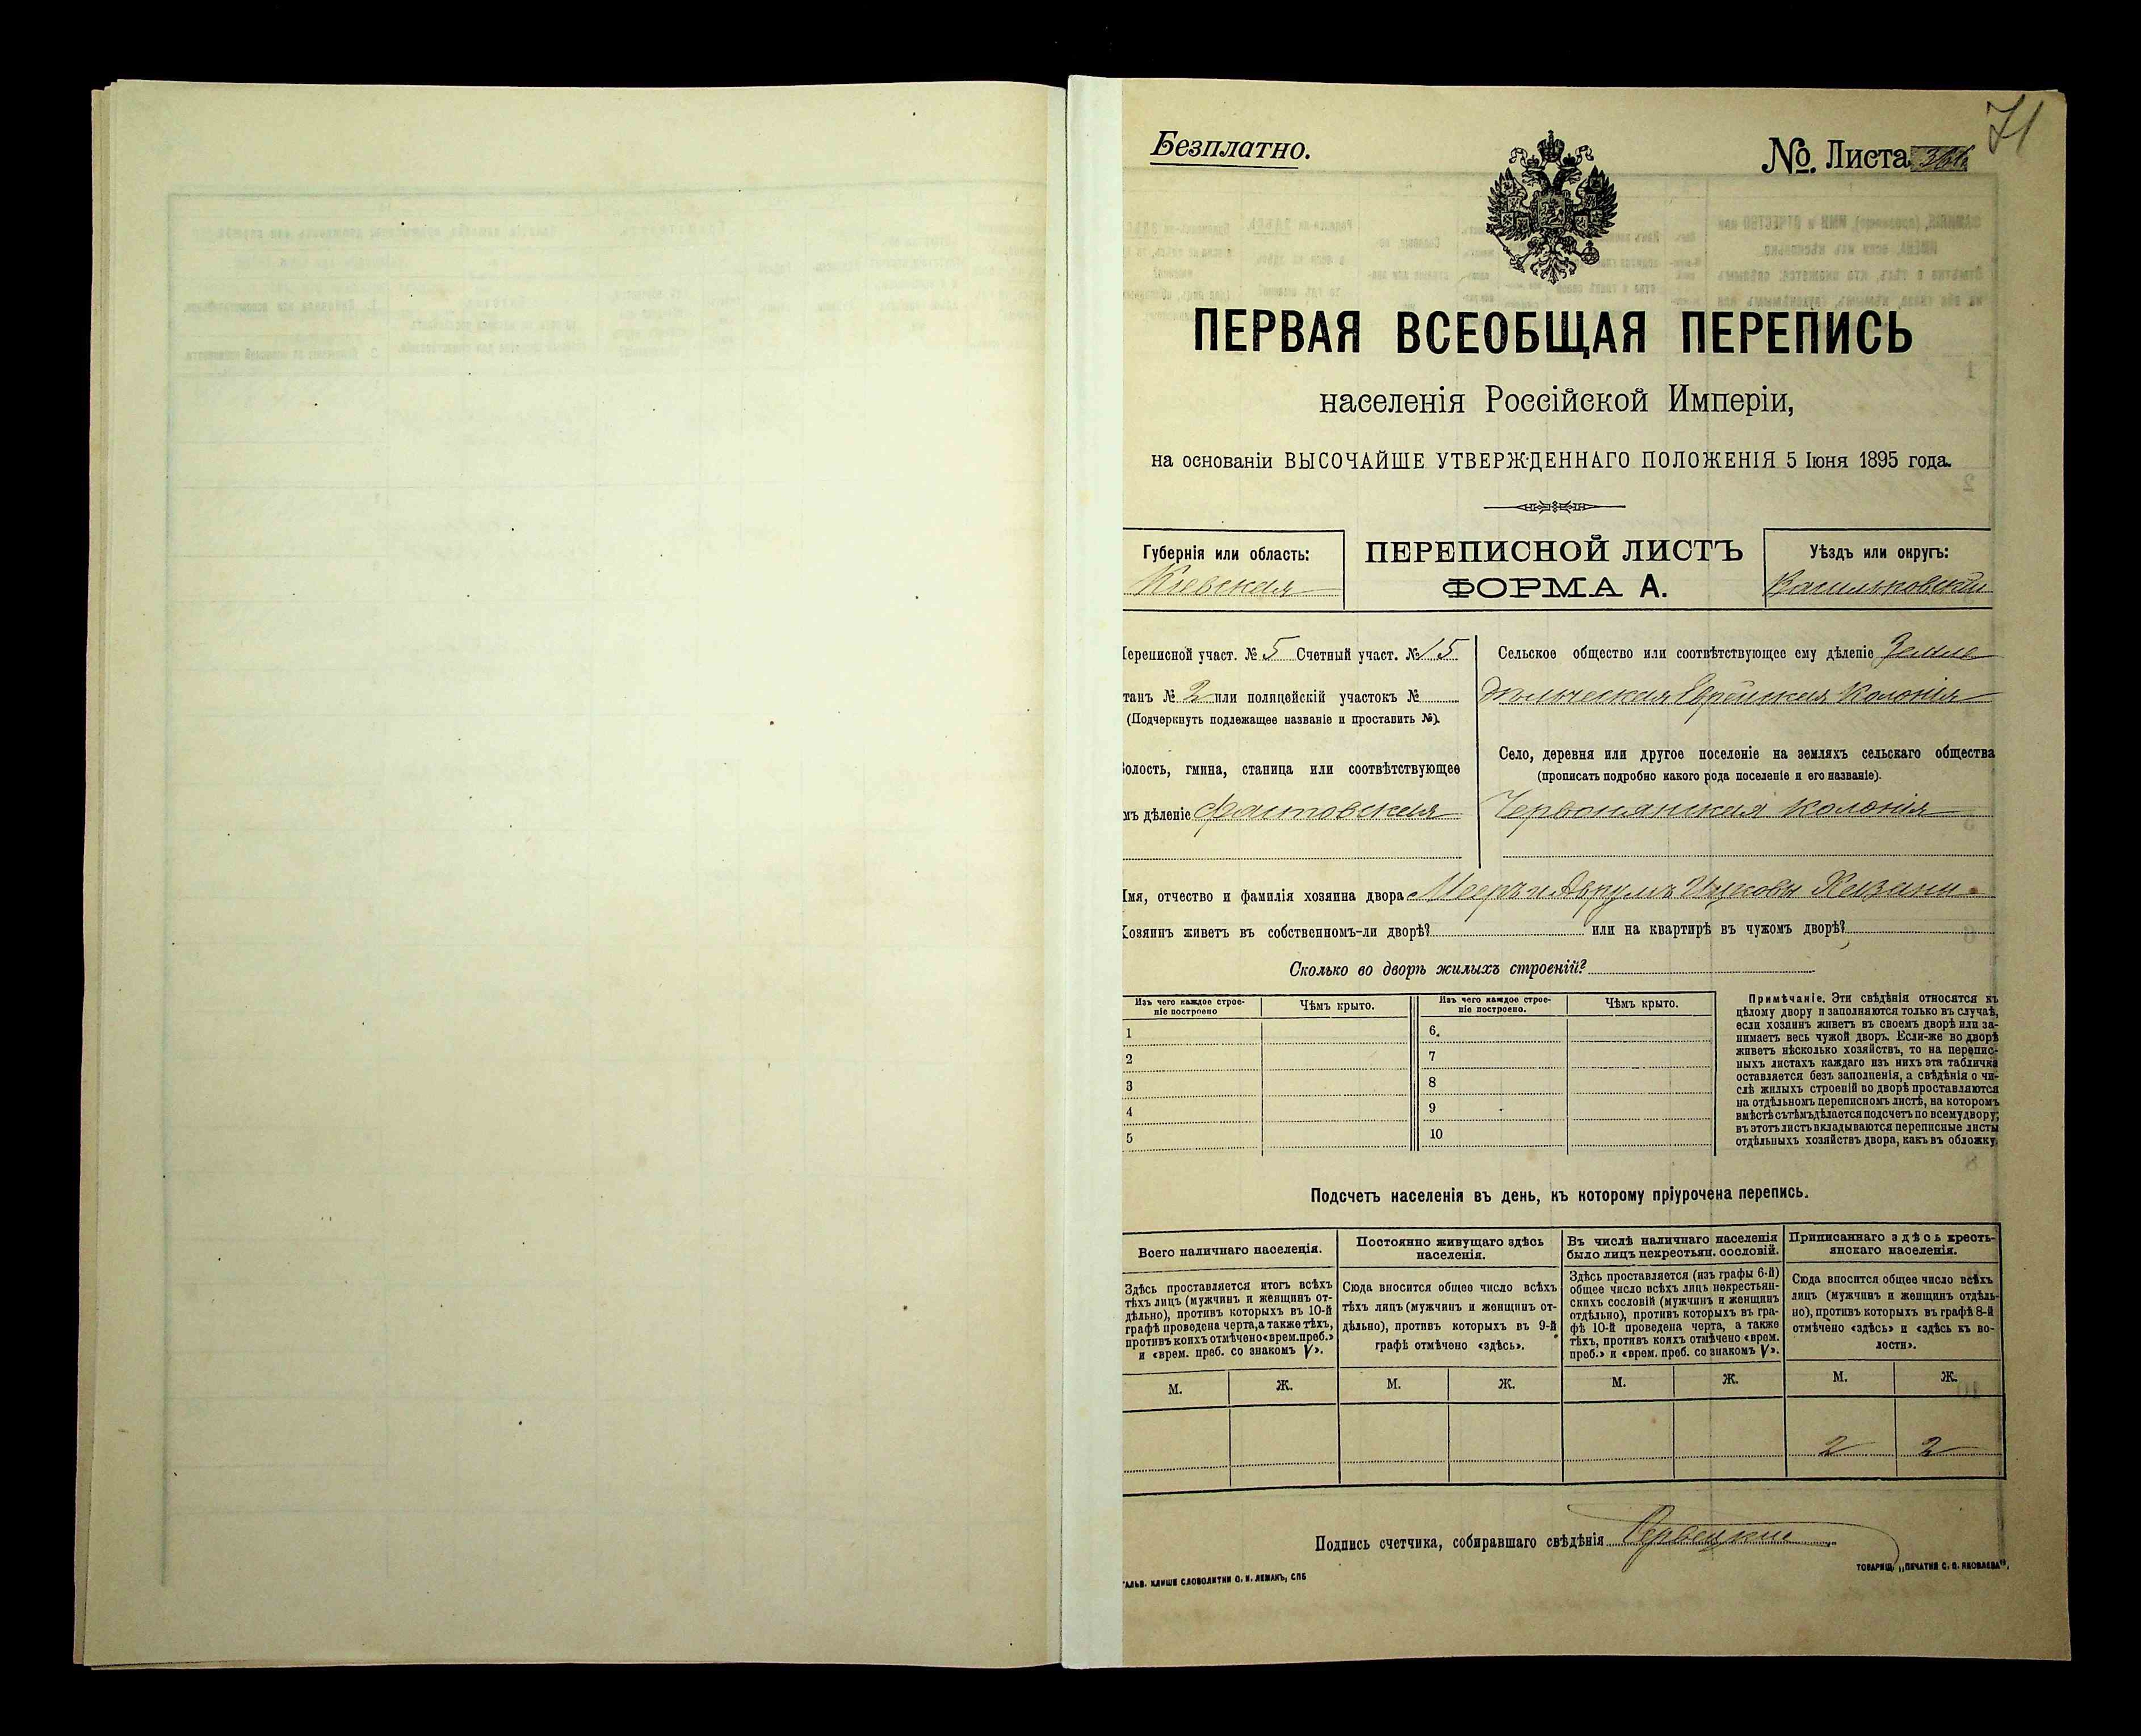 71
Безплатно.
№. Листа
ПЕРВАЯ ВСЕОБЩАЯ ПЕРЕПИСЬ
населенія Россійской Имперіи,
на основаніи ВЫСОЧАЙШЕ УТВЕРЖДЕННАГО ПОЛОЖЕНІЯ 5 Іюня 1895 года.
Губернія или область:
Кіевская
ПЕРЕПИСНОЙ ЛИСТЪ
ФОРМА А.
Уѣздъ или округъ:
Васильковскій
Переписной участ. № 5 Счетный участ. № 15
танъ № 2 или полицейскій участокъ №
(Подчеркнуть подлежащее названіе и проставить №).
Волость, гмина, станица или соотвѣтствующее
мъ дѣленіе Фастовская
Сельское общество или соотвѣтствующее ему дѣленіе Земле
дѣльческая Еврейская Колонія
Село, деревня или другое поселеніе на земляхъ сельскаго общества
(прописать подробно какого рода поселеніе и его названіе).
Червонянская колонія
Имя, отчество и фамилія хозяина двора Мееръ и Аврумъ Ицковы
Хозяинъ живетъ въ собственномъ-ли дворѣ? или на квартирѣ въ чужомъ дворѣ?
Сколько во дворѣ жилыхъ строеній?
Изъ чего каждое строе-
ніе построено
Чѣмъ крыто.
Изъ чего каждое строе-
ніе построено.
Чѣмъ крыто.
1
2
3
4
5
6.
7
8
9
10
Примѣчаніе. Эти свѣдѣнія относятся къ
цѣлому двору и заполняются только въ случаѣ,
если хозяинъ живетъ въ своемъ дворѣ или за-
нимаетъ весь чужой дворъ. Если-же во дворѣ
живетъ нѣсколько хозяйствъ, то на перепис-
ныхъ листахъ каждаго изъ нихъ эта табличка
оставляется безъ заполненія, а свѣдѣнія о чи-
слѣ жилыхъ строеній во дворѣ проставляются
на отдѣльномъ переписномъ листѣ, на которомъ
вмѣстѣ съ тѣмъ дѣлается подсчетъ по всему двору;
въ этотъ листъ вкладываются переписные листы
отдѣльныхъ хозяйствъ двора, какъ въ обложку.
Подсчетъ населенія въ день, къ которому пріурочена перепись.
Всего наличнаго населенія.
Здѣсь проставляется итогъ всѣхъ
тѣхъ лицъ (мужчинъ и женщинъ от-
дѣльно), противъ которыхъ въ 10-й
графѣ проведена черта, а также тѣхъ,
противъ коихъ отмѣчено «врем. преб.»
и «врем. преб. со знакомъ V».
Постоянно живущаго здѣсь
населенія.
Сюда вносится общее число всѣхъ
тѣхъ лицъ (мужчинъ и женщинъ от-
дѣльно), противъ которыхъ въ 9-й
графѣ отмѣчено «здѣсь».
Въ числѣ наличнаго населенія
было лицъ некрестьян. сословій.
Здѣсь проставляется (изъ графы 6-й)
общее число всѣхъ лицъ некрестьян-
скихъ сословій (мужчинъ и женщинъ
отдѣльно), противъ которыхъ въ гра-
фѣ 10-й проведена черта, а также
тѣхъ, противъ коихъ отмѣчено «врем.
преб.» и «врем. преб. со знакомъ V».
Приписаннаго здѣсь кресть-
янскаго населенія.
Сюда вносится общее число всѣхъ
лицъ (мужчинъ и женщинъ отдѣль-
но), противъ которыхъ въ графѣ 8-й
отмѣчено «здѣсь» и «здѣсь къ во-
лости».
М. Ж. М. Ж. М. Ж. М. Ж.
2 2
Подпись счетчика, собиравшаго свѣдѣнія
ГАЛЬВ. КЛИШЕ СЛОВОЛИТНИ О. И. ЛЕМАНЪ, СПБ
ТОВАРИЩ. „ПЕЧАТНЯ С. П. ЯКОВЛЕВА".